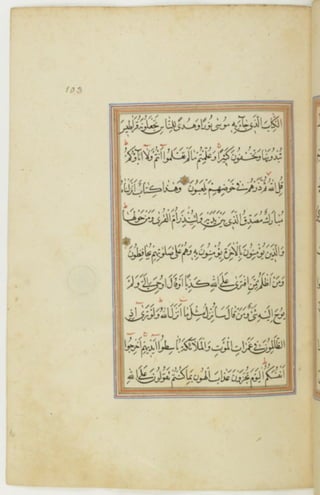 103
الكتاب الذي جاء به موسى نورا وهدى للناس تجعلونه قراطيس
تبدونها وتخفون كثيرا وعلمتم ما لم تعلموا أنتم ولا آباؤكم
قل الله ثم ذرهم في خوضهم يلعبون وهذا كتاب أنزلناه
مبارك مصدق الذي بين يديه ولتنذر أم القرى ومن حولها
والذين يؤمنون بالآخرة يؤمنون به وهم على صلوتهم يحافظون
ومن أظلم ممن افترى على الله كذبا أو قال أوحي إلي ولم
يوح إليه شيء ومن قال سأنزل مثل ما أنزل الله ولو ترى إذ
الظالمون في غمرات الموت والملائكة باسطوا أيديهم أخرجوا
أنفسكم اليوم تجزون عذاب الهون بما كنتم تقولون على الله